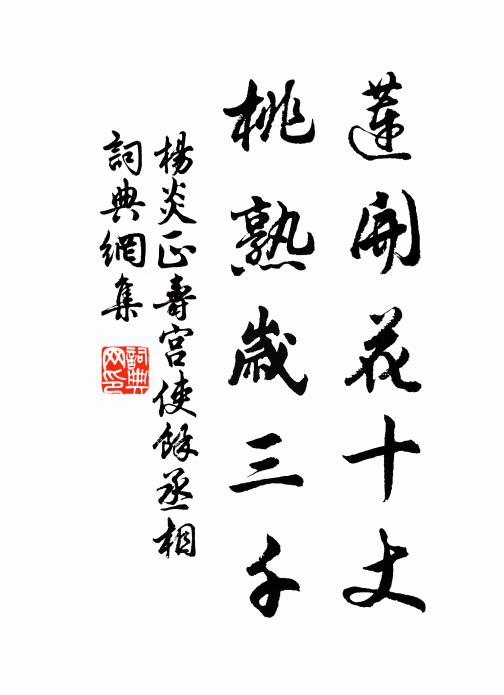 蓮開花十丈
桃熟歲三千
楊炎正壽宮使餘丞相
詞典網集
詞典网印